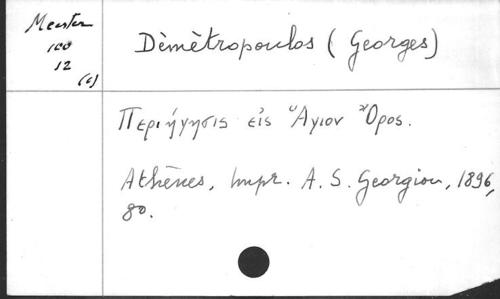 Meester
100
12
(c)
Dèmètropoulos (Georges)
Περιήγησις εἰς Ἅγιον Ὄρος.
Athènes, Impr. A. S. Georgiou, 1896,
8º.